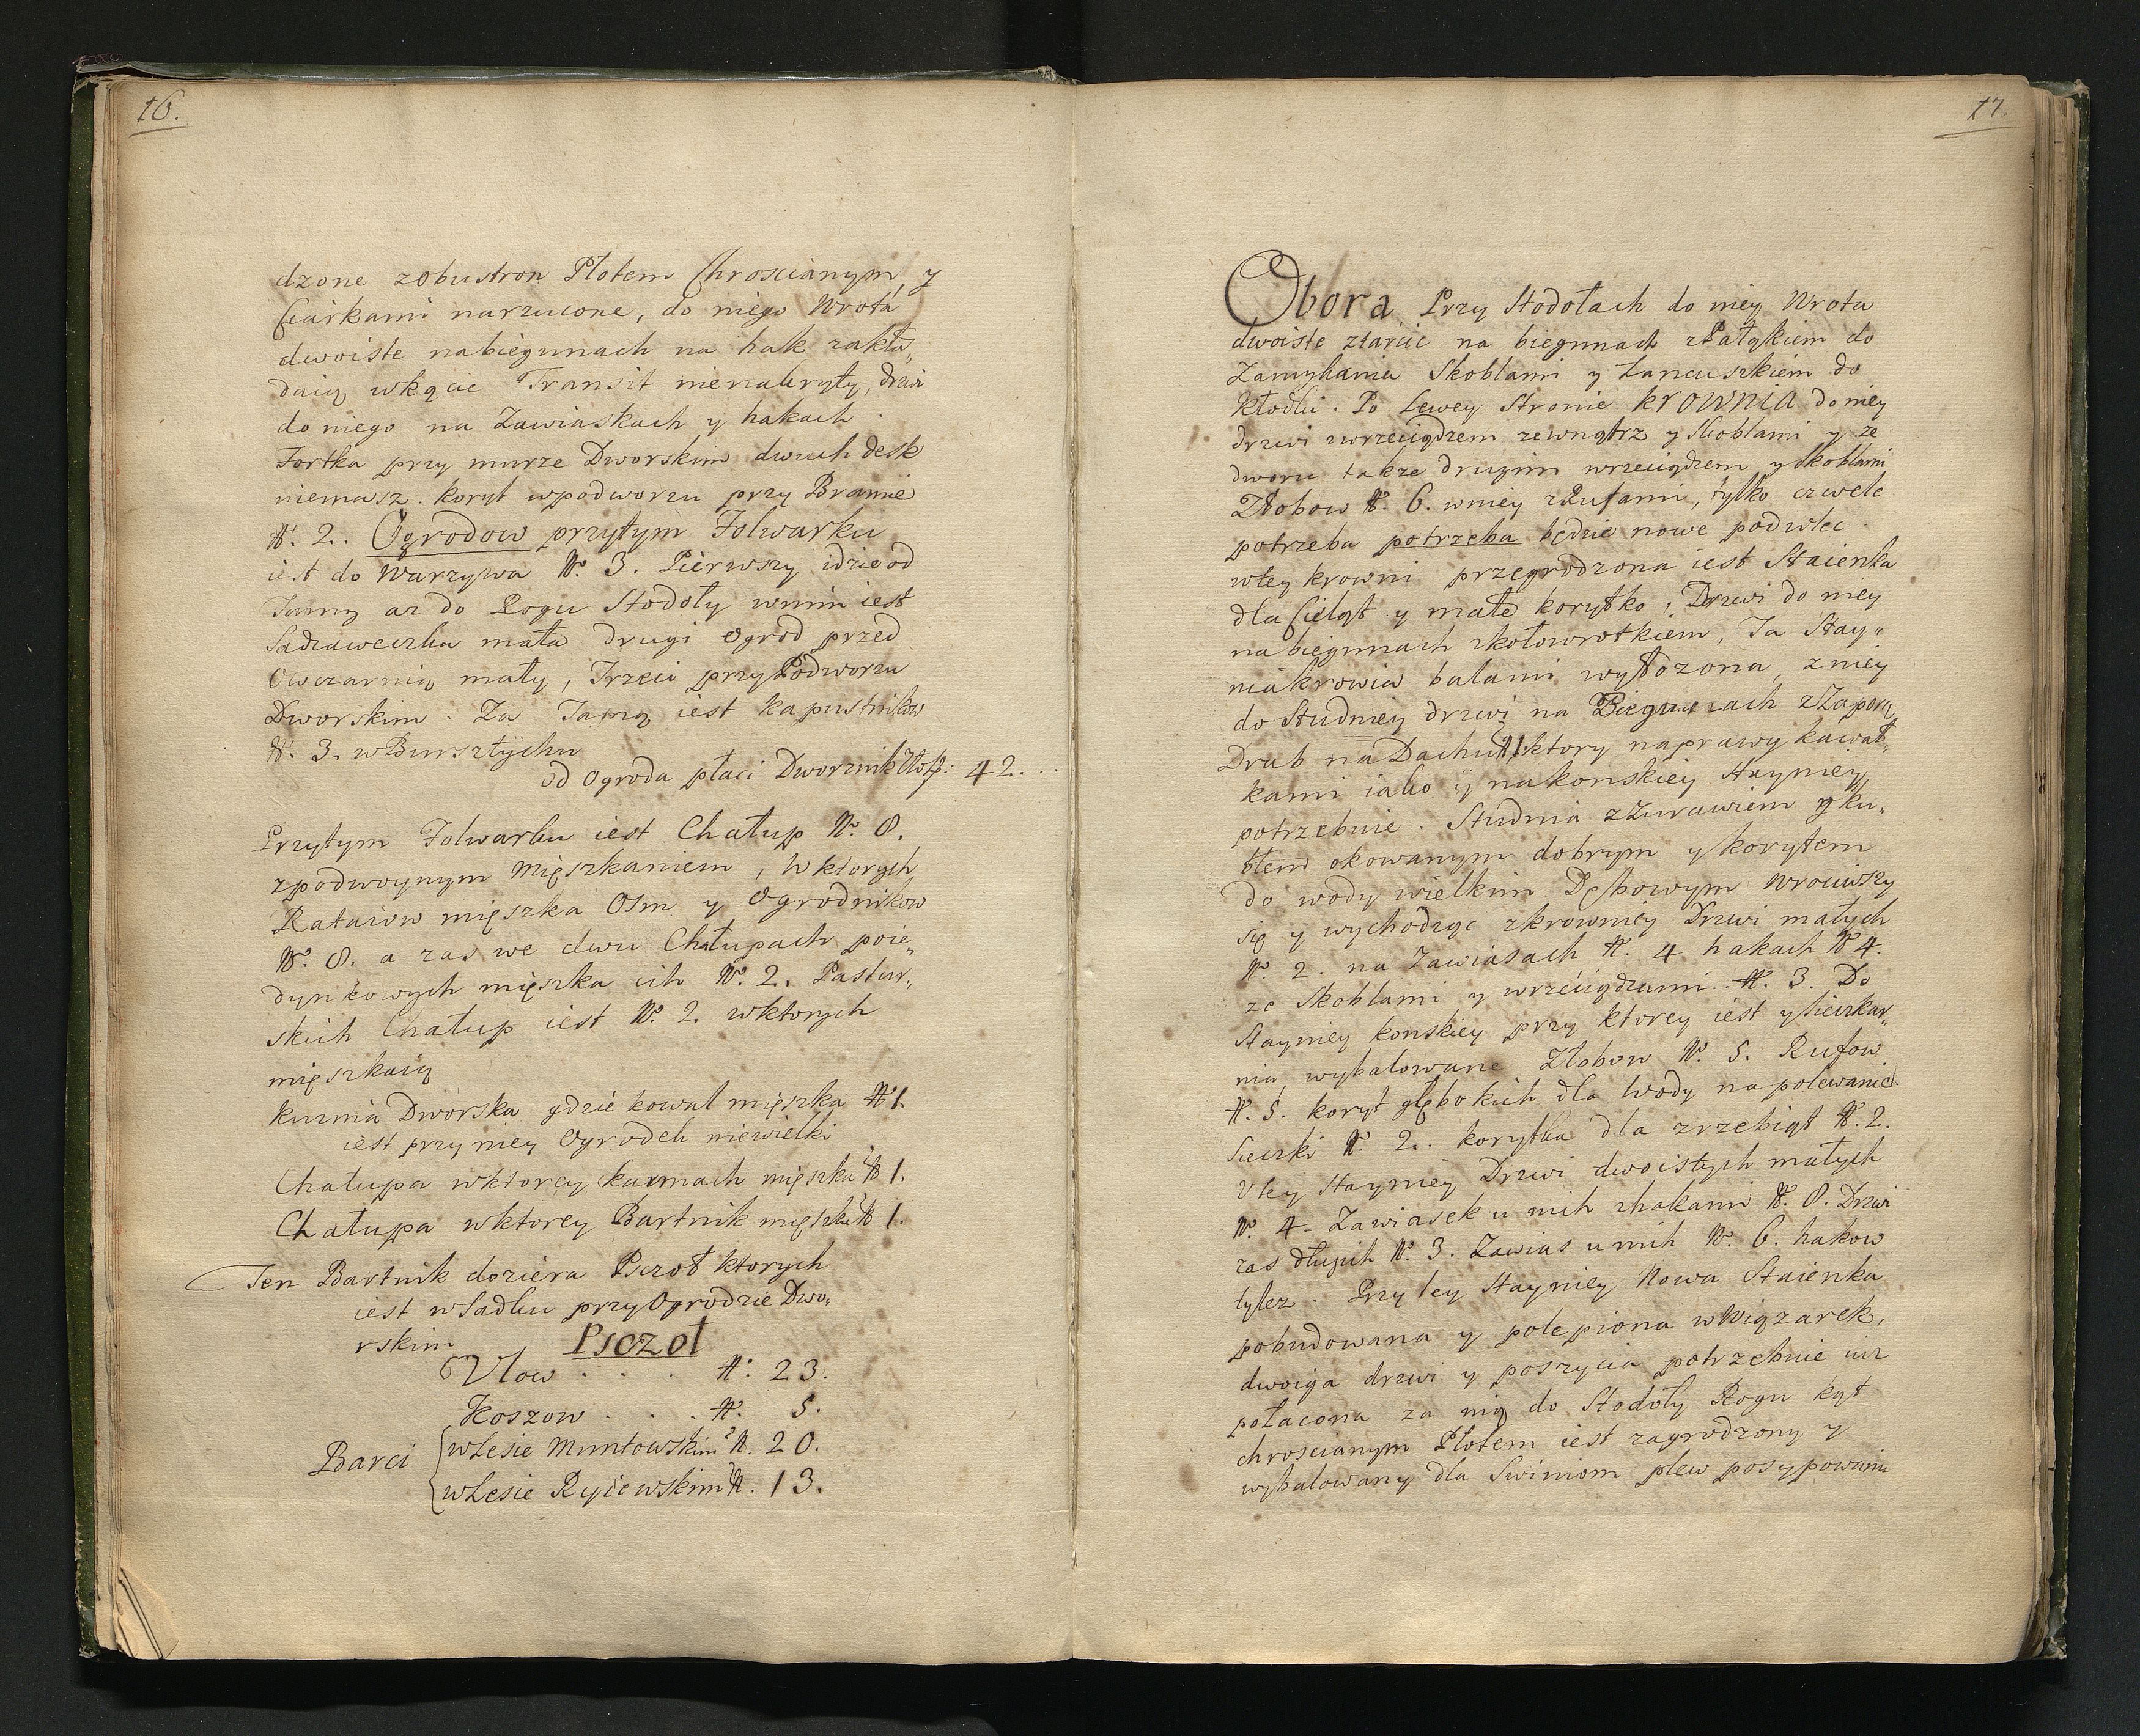 16.
dzone zobustron Płotem Chroscianym, y
Ciarkami narzucone, do niego Wrota
dwoiste nabiegunach na hak zakła„
daią wkącie Transit nienakryty, drzwi
do niego na Zawiaskach y hakach
Fortka przy murze Dworskim dwuch desk
niemasz. koryt wpodworzu przy Bramie
N. 2. Ogrodow przytym Folwarku
iest do Warzywa No. 3. Pierwszy idzie od
Tamy az do Rogu Stodoły wnim iest
Sadzaweczka mała drugi Ogrod przed
Owczarnią mały, Trzeci przy Podworzu
Dworskim. Za Tamą iest kapustnikow
N. 3. wBursztychu
od Ogroda płaci Dwornik Złotp: 42...
Przytym Folwarku iest Chałup No. 8.
zpodwoynym Mięszkaniem, w ktorych
Rataiow mięszka Osm y Ogrodnikow
No. 8. a zas we dwu Chałupach poie„
dynkowych mięszka ich No. 2. Pastur„
skich Chałup iest No. 2 wktorych
mięszkaią
kuznia Dworska gdzie kowal mięszka N 1.
iest przy niey Ogrodek niewielki
Chałupa wktorey karmach mięszka N 1.
Chałupa wktorey Bartnik mięszka N 1.
Ten Bartnik doziera Pszoł ktorych
iest wSadku przy Ogrodzie Dwo„
rskim Psczoł
Vlow . . . N. 23.
Koszow . . . N. 5.
Barci wLesie Muntowskim N. 20.
wLesie Ryiewskim N. 13.
17.
Obora Przy Stodołach do niey Wrota
dwoiste ztarcic na biegunach zPałykiem do
Zamykania Skoblami y Lancuszkiem do
Kłodki. Po Lewey Stronie krownia do niey
drzwi zwrzeciądzem zewnątrz y Skoblami y ze
dworu także drugim wrzeciądzem y skoblami
Złobow N. 6. wniey zRufami, tylko czwele
potrzeba potrzeba będzie nowe podwlec
wtey krowni przegrodzona iest Staienka
dla Cieląt y małe korytko, Drzwi do niey
na biegunach zkołowrotkiem, Ta Stay„
nia krowia balami wyłozona, zniey
do Studniey drzwi na Biegunach zZaporą
Drab na Dachu N 1. ktory naprawy kawał„
kami iako y nakonskiey Stayniey
potrzebuie. Studnia zZurawiem y ku„
błem okowanym dobrym y korytem
do wody wielkim Dębowym wrociwszy
się y wychodząc zkrowniey Drzwi małych
No. 2. na Zawiasach N. 4 hakach N 4.
ze Skoblami y wrzeciądzami.. N. 3. Do
Stayniey konskiey przy ktorey iest y sieczkar„
nia, wybalowane Złobow No. 5. Rufow
N. 5. koryt głębokich dla wody na polewanie
Sieczki N. 2.. korytka dla zrzebiąt N. 2.
Vtey Stayniey Drzwi dwoistych małych
No. 4 - Zawiasek u nich zhakami N. 8. Drzwi
zas długich No. 3. Zawias u nich No. 6. hakow
tylez. Przy tey Stayniey Nowa Staienka
pobudowana y polepiona wWiązarek,
dwoiga drzwi y poszycia potrzebuie iuz
połacona za nią do Stodoły Rogu kąt
chroscianym Płotem iest zagrodzony y
wybalowany dla Swiniom plew posypowania